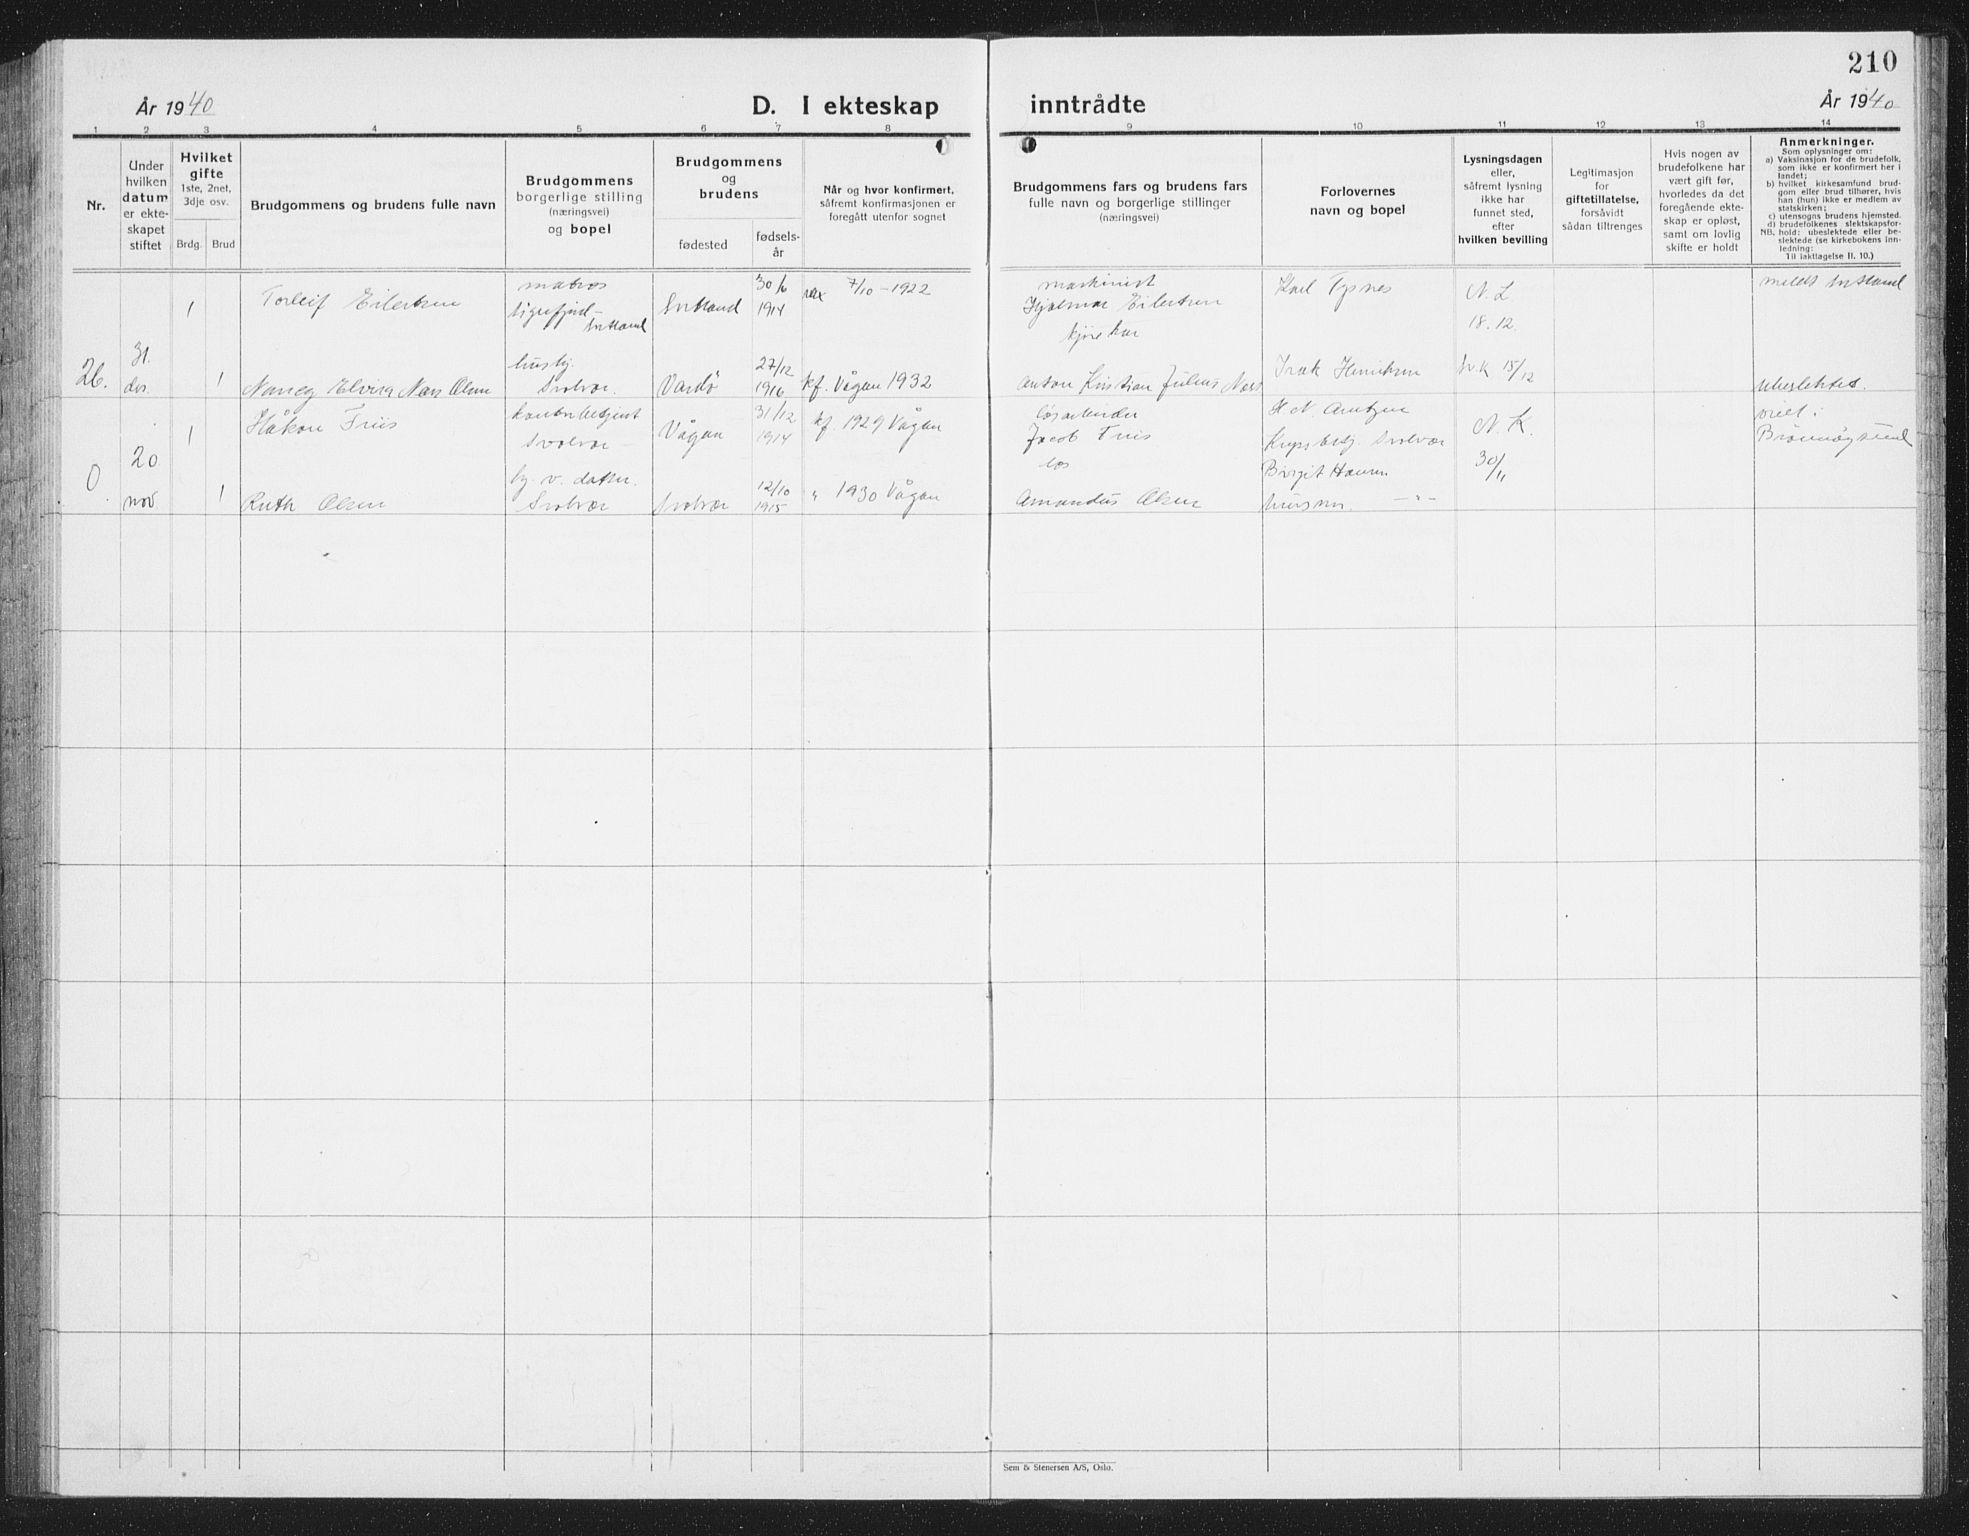 210
År 1940
D. I ekteskap inntrådte
År 1940
1 2 3 4 5 6 7 8 9 10 11 12 13 14
Nr.
Under
hvilken
datum
er ekte-
skapet
stiftet
Hvilket
gifte
1ste, 2net,
3dje osv.
Brdg. Brud
Brudgommens og brudens fulle navn
Brudgommens
borgerlige stilling
(næringsvei)
og bopel
Brudgommens
og
brudens
fødested
fødsels-
år
Når og hvor konfirmert,
såfremt konfirmasjonen er
foregått utenfor sognet
Brudgommens fars og brudens fars
fulle navn og borgerlige stillinger
(næringsvei)
Forlovernes
navn og bopel
Lysningsdagen
eller,
såfremt lysning
ikke har
funnet sted,
efter
hvilken bevilling
Legitimasjon
for
giftetillatelse,
forsåvidt
sådan tiltrenges
Hvis nogen av
brudefolkene har
vært gift før,
hvorledes da det
foregående ekte-
skap er opløst,
samt om lovlig
skifte er holdt
Anmerkninger.
Som oplysninger om:
a) Vaksinasjon for de brudefolk,
som ikke er konfirmert her i
landet;
b) hvilket kirkesamfund brud-
gom eller brud tilhører, hvis
han (hun) ikke er medlem av
statskirken;
c) utensogns brudens hjemsted.
d) brudefolkenes slektskapsfor-
NB. hold: ubeslektede eller be-
slektede (se kirkebokens inn-
ledning:
Til iakttagelse II. 10.)
26.
31.
des.
1
Torleif Eilertsen
matros
Sigerfjord-
Sortland
Sortland
30/6
1914
7/10 - 1922
maskinist
Hjalmar Eilertsen
Karl Tysnes
N. L
18. 12.
meldt Sortland
1
Nancy Elvira Næss Olsen
Svolvær.
Vardö
27/12
1916
kf. Vågan 1932
Anton Kristian Julius Næss
Isak Henriksen
15/12
Ubeslektet.
0
20
nov
1
Håkon Friis
kontorbetjent
Svolvær
Vågan
31/12
1914
kf. 1929 Vågan
løsarbeider
Jacob Friis
H N. Arntzen
Svolvær
N. K.
30/11
viet i
Brønnøysund
1
Ruth Olsen
Svolvær
Svolvær
12/10
1915
" 1930 Vågan
los
Amandus Olsen
Birgit Hansen
—"—
Sem & Stenersen A/S, Oslo.